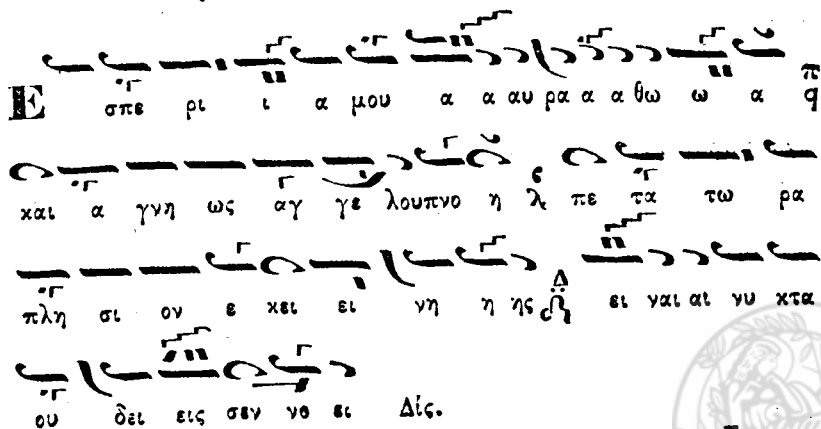 Ε σπε ρι ι α μου α α αυ ρα α α θω ω α π q
και α γνη ως αγ γε λουπνο η λ ς πε τα τω ρα
πλη σι ον ε κει ει νη η ης Δ ει ναι αι νυ κτα
ου δει εις σεν νο ει Δίς.